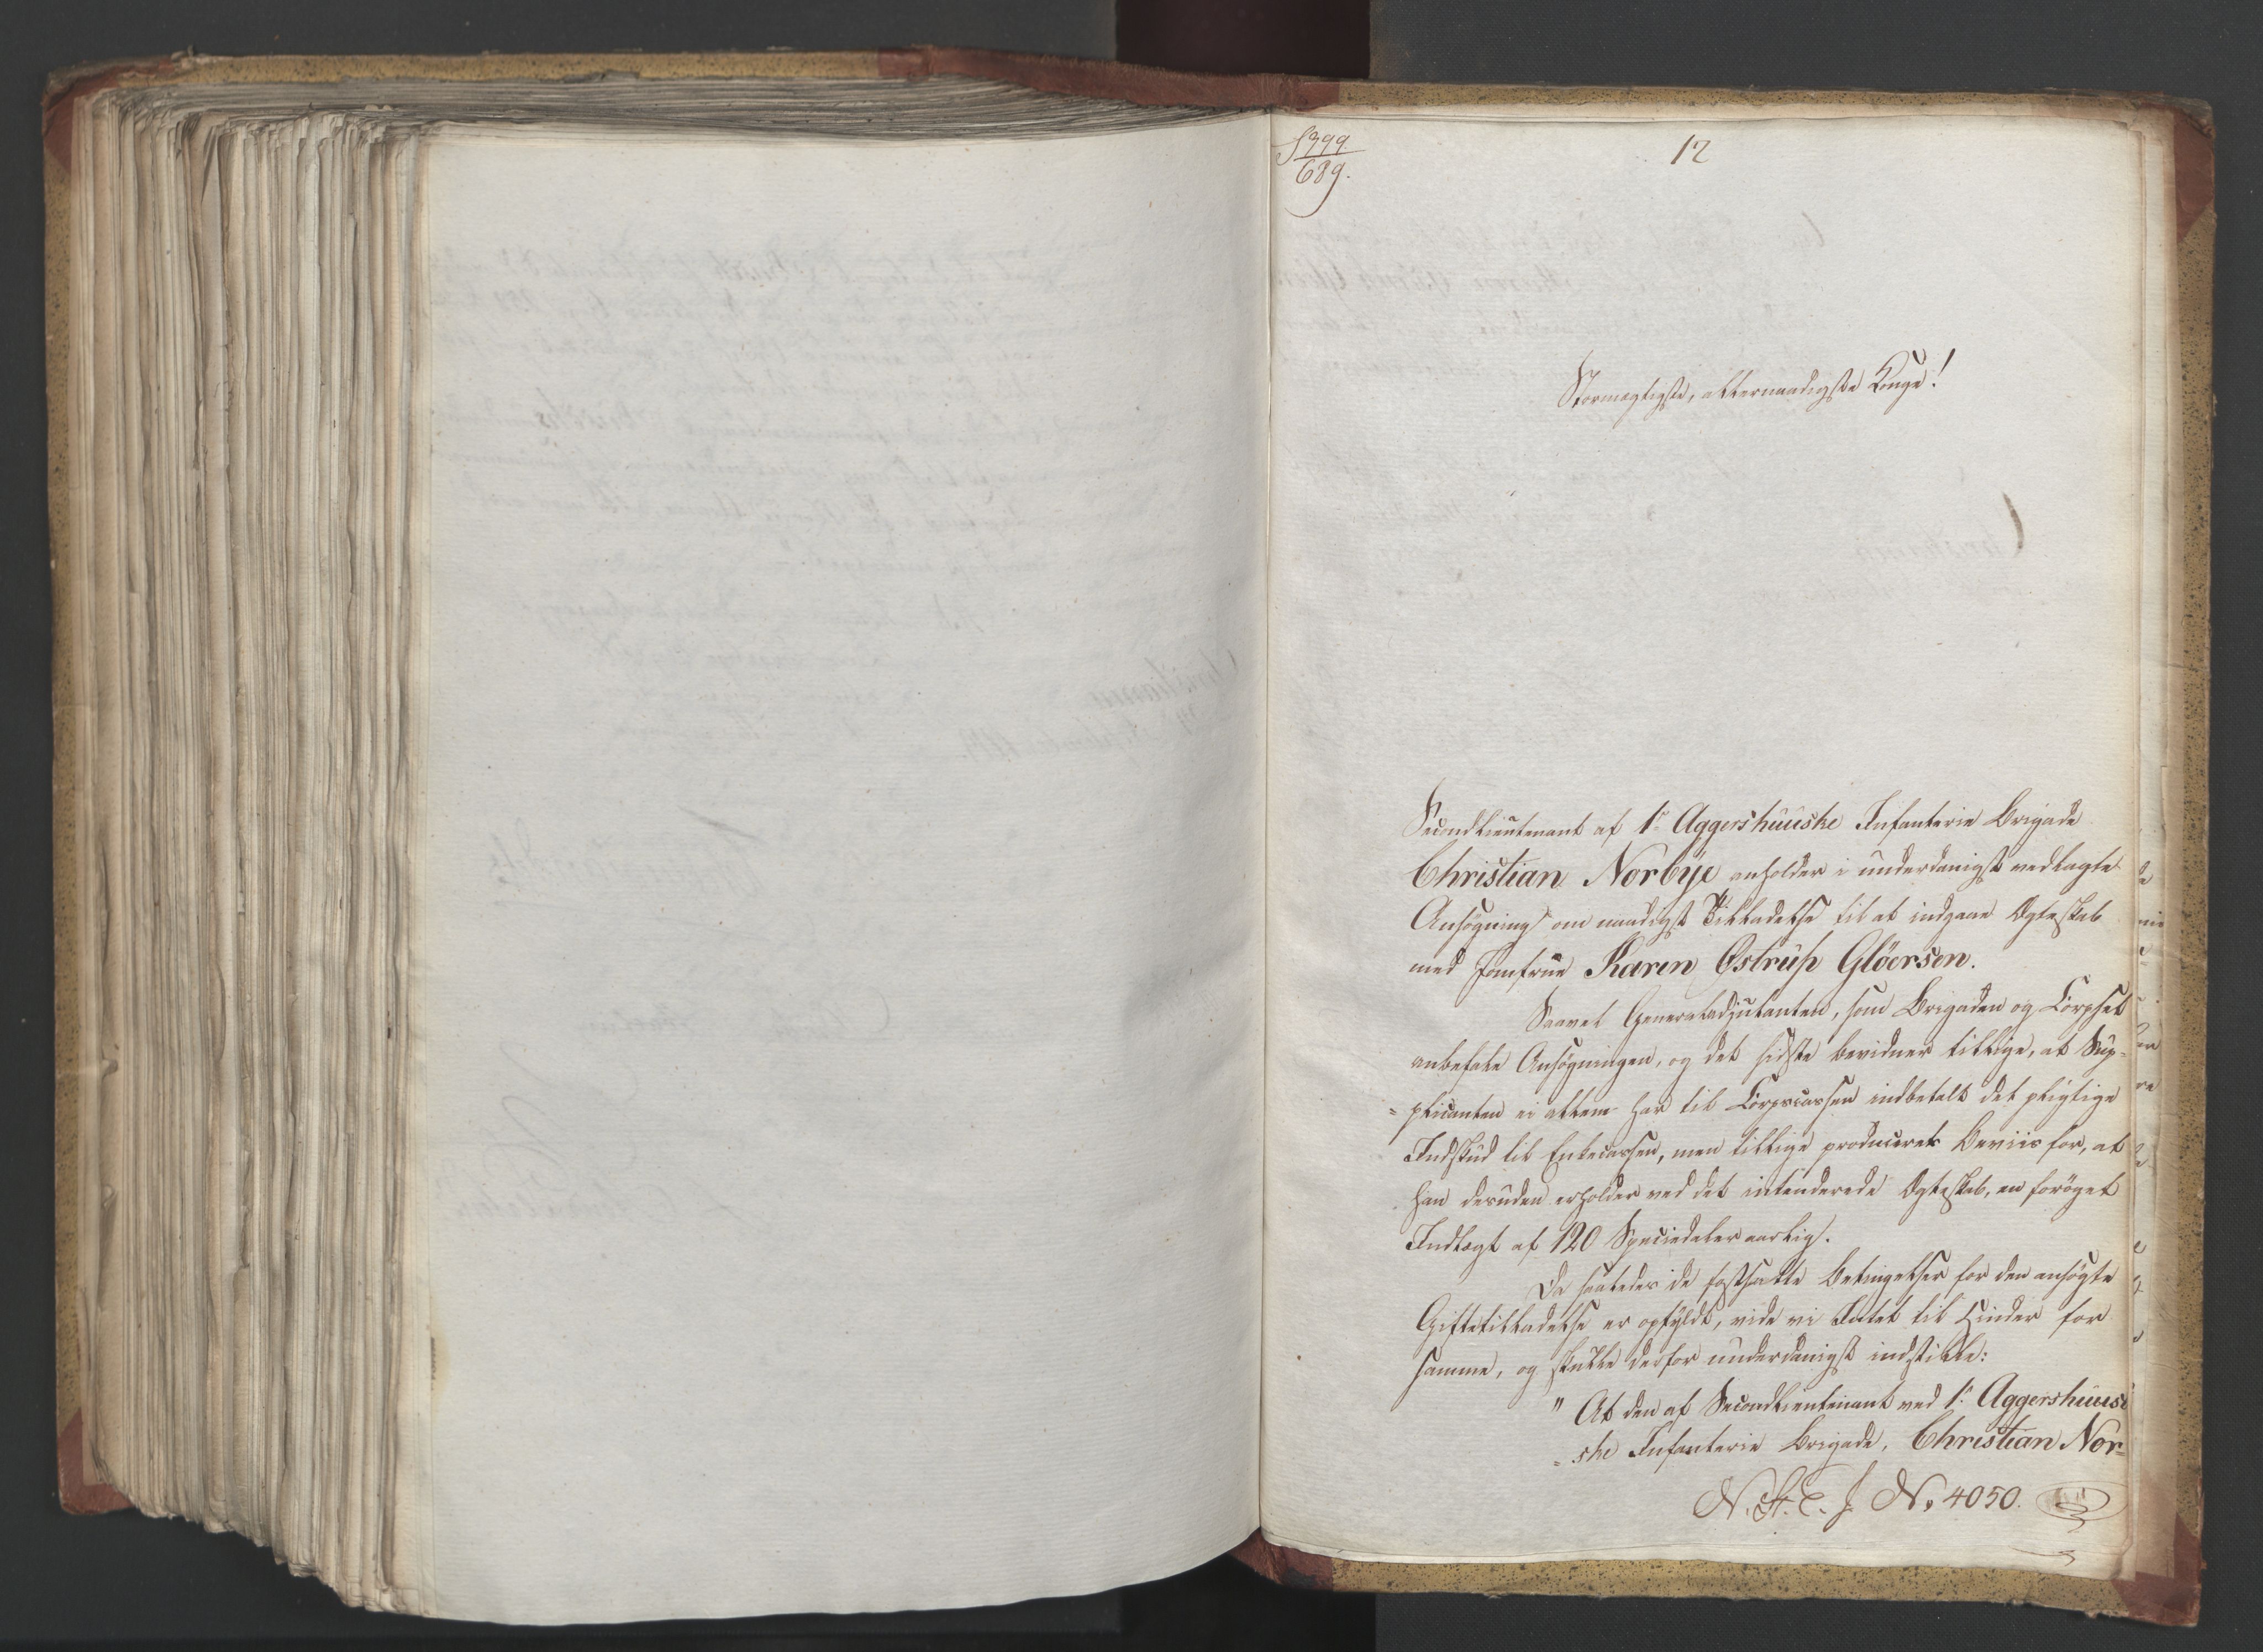 S 399
689.
12
Stormægtigste, allernaadigste Konge!
Secondlieutenant af 1e Aggershuuske Infanterie Brigade
Christian Norbye anholder i underdanigst vedlagte
Ansøgning om naadigst Tilladelse til at indgaae Ægteskab
med Jomfrue Karen Østrup Gløersen.
Saavel Generaladjutanten, som Brigaden og Corpset
anbefale Ansøgningen, og det sidste bevidner tillige, at Sup-
=plicanten ei allene har til Corpscassen indbetalt det pligtige
Indskud til Enkecassen, men tillige produceret Beviis for, at
han desuden erholder ved det intenderede Ægteskab, en forøget
Indtægt af 120 Speciedaler aarlig.
Da saaledes de fastsatte Betingelser for den ansøgte
Giftetilladelse er opfyldt, vide vi Intet til Hinder for
samme, og skulle derfor underdanigst indstille:
" At den af Secondlieutenant ved 1e Aggershuus
=ske Infanterie Brigade, Christian Nor=
N. St. C. J. No 4050.